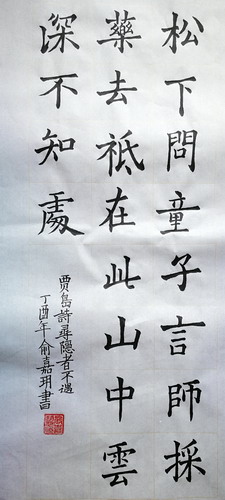 松下問童子言師採
藥去祗在此山中雲
深不知處
賈島詩尋隱者不遇
丁酉年俞嘉玥書